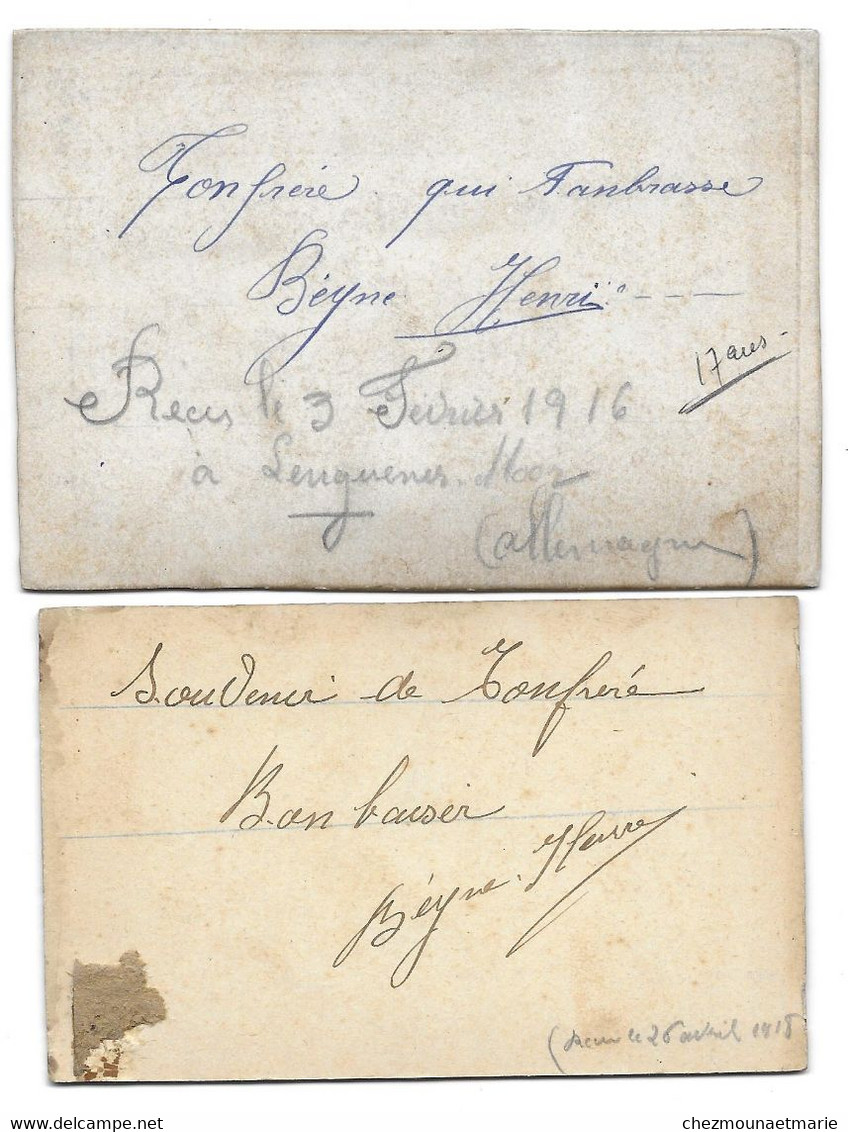 Tonfrère qui t'anbrasse
Béyne Henri
17 ans
Recus le 3 Février 1916
à Lenguenes-Moor
(allemagne)
Souvenir de Tonfreré
Bon baiser
Béyne Henri
(Recu le 26 avril 1918
chezmounaetmarie